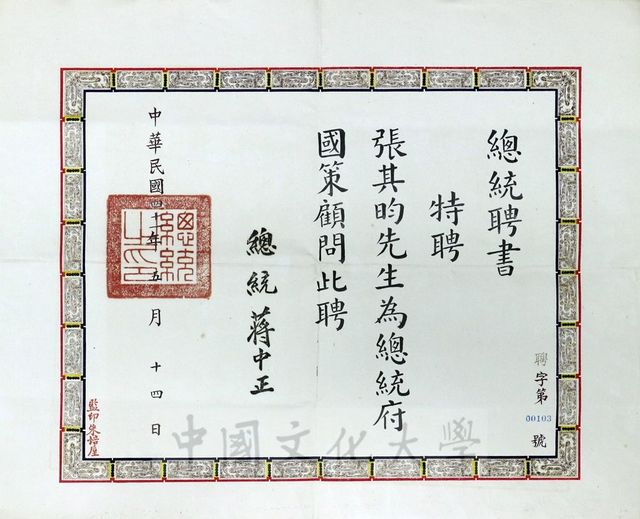 總統聘書
特聘
張其昀先生為總統府
國策顧問此聘
總統 蔣中正
中華民國四十一年五月十四日
總統之印
聘字第00103號
監印朱
中國文化大學